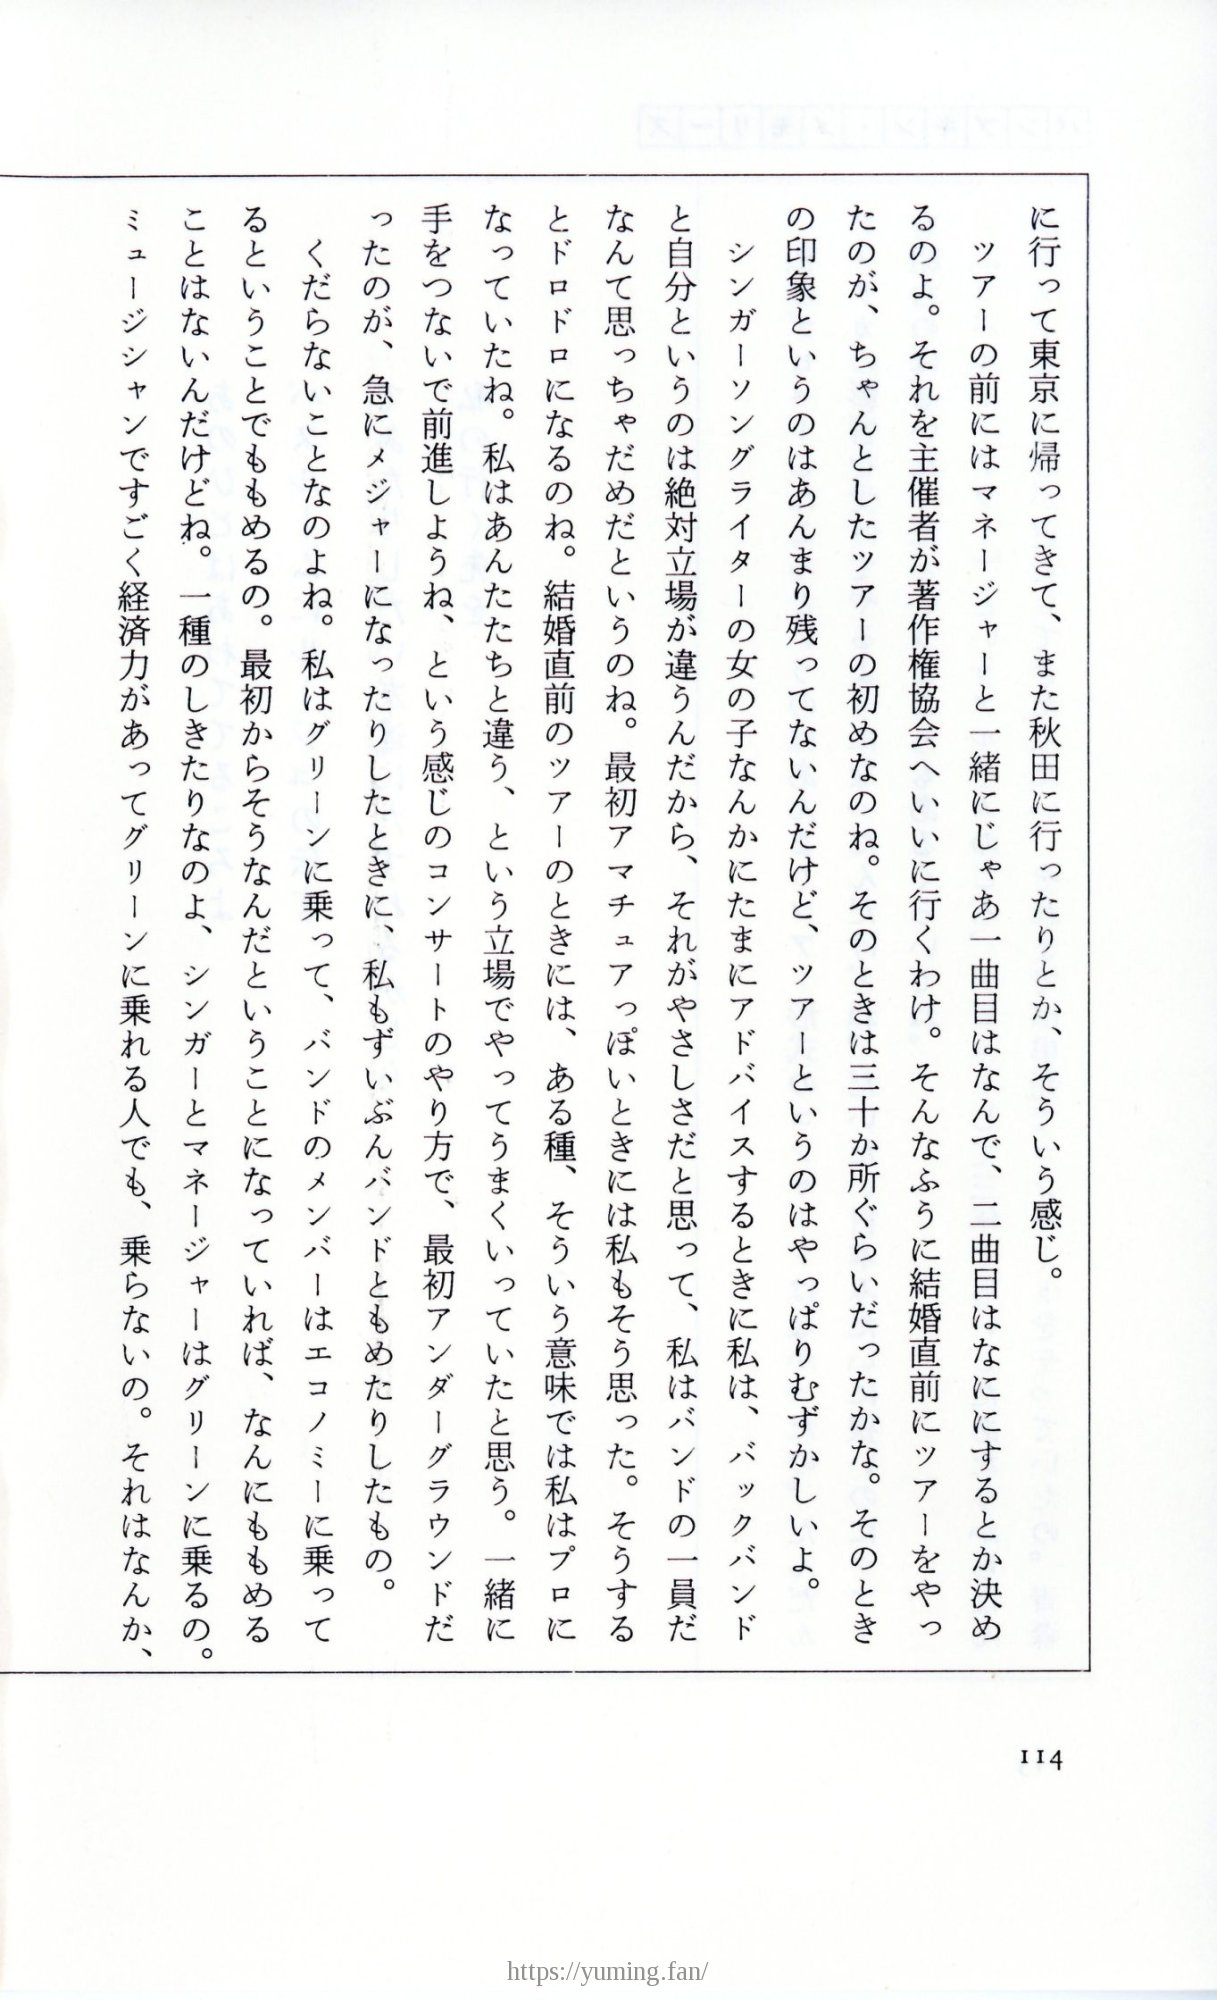 に行って東京に帰ってきて、また秋田に行ったりとか、そういう感じ。
　ツアーの前にはマネージャーと一緒にじゃあ一曲目はなんで、二曲目はなににするとか決め
るのよ。それを主催者が著作権協会へいいに行くわけ。そんなふうに結婚直前にツアーをやっ
たのが、ちゃんとしたツアーの初めなのね。そのときは三十か所ぐらいだったかな。そのとき
の印象というのはあんまり残ってないんだけど、ツアーというのはやっぱりむずかしいよ。
　シンガーソングライターの女の子なんかにたまにアドバイスするときに私は、バックバンド
と自分というのは絶対立場が違うんだから、それがやさしさだと思って、私はバンドの一員だ
なんて思っちゃだめだというのね。最初アマチュアっぽいときには私もそう思った。そうする
とドロドロになるのね。結婚直前のツアーのときには、ある種、そういう意味では私はプロに
なっていたね。私はあんたたちと違う、という立場でやってうまくいっていたと思う。一緒に
手をつないで前進しようね、という感じのコンサートのやり方で、最初アンダーグラウンドだ
ったのが、急にメジャーになったりしたときに、私もずいぶんバンドともめたりしたもの。
　くだらないことなのよね。私はグリーンに乗って、バンドのメンバーはエコノミーに乗って
るということでももめるの。最初からそうなんだということになっていれば、なんにももめる
ことはないんだけどね。一種のしきたりなのよ、シンガーとマネージャーはグリーンに乗るの。
ミュージシャンですごく経済力があってグリーンに乗れる人でも、乗らないの。それはなんか、
114
https://yuming.fan/